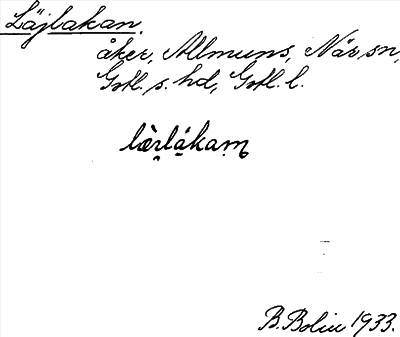 Läjlakan.
åker, Allmuns, När sn,
Gotl. s. hd, Gotl. l.
B. Bolin 1933.